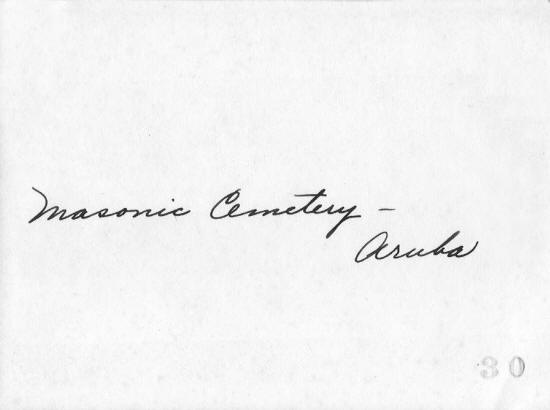 Masonic Cemetery -
Aruba
30